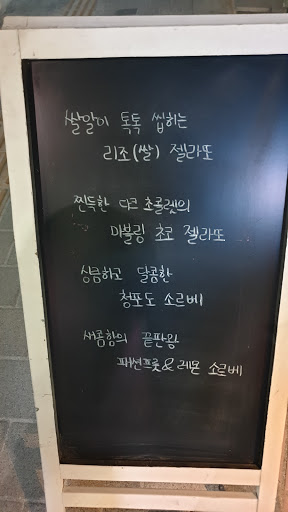 쌀알이 톡톡 씹히는
리조(쌀) 젤라또
찐득한 다크 초콜렛의
마블링 초코 젤라또
상큼하고 달콤한
청포도 소르베
새콤함의 끝판왕
패션프룻 & 레몬 소르베